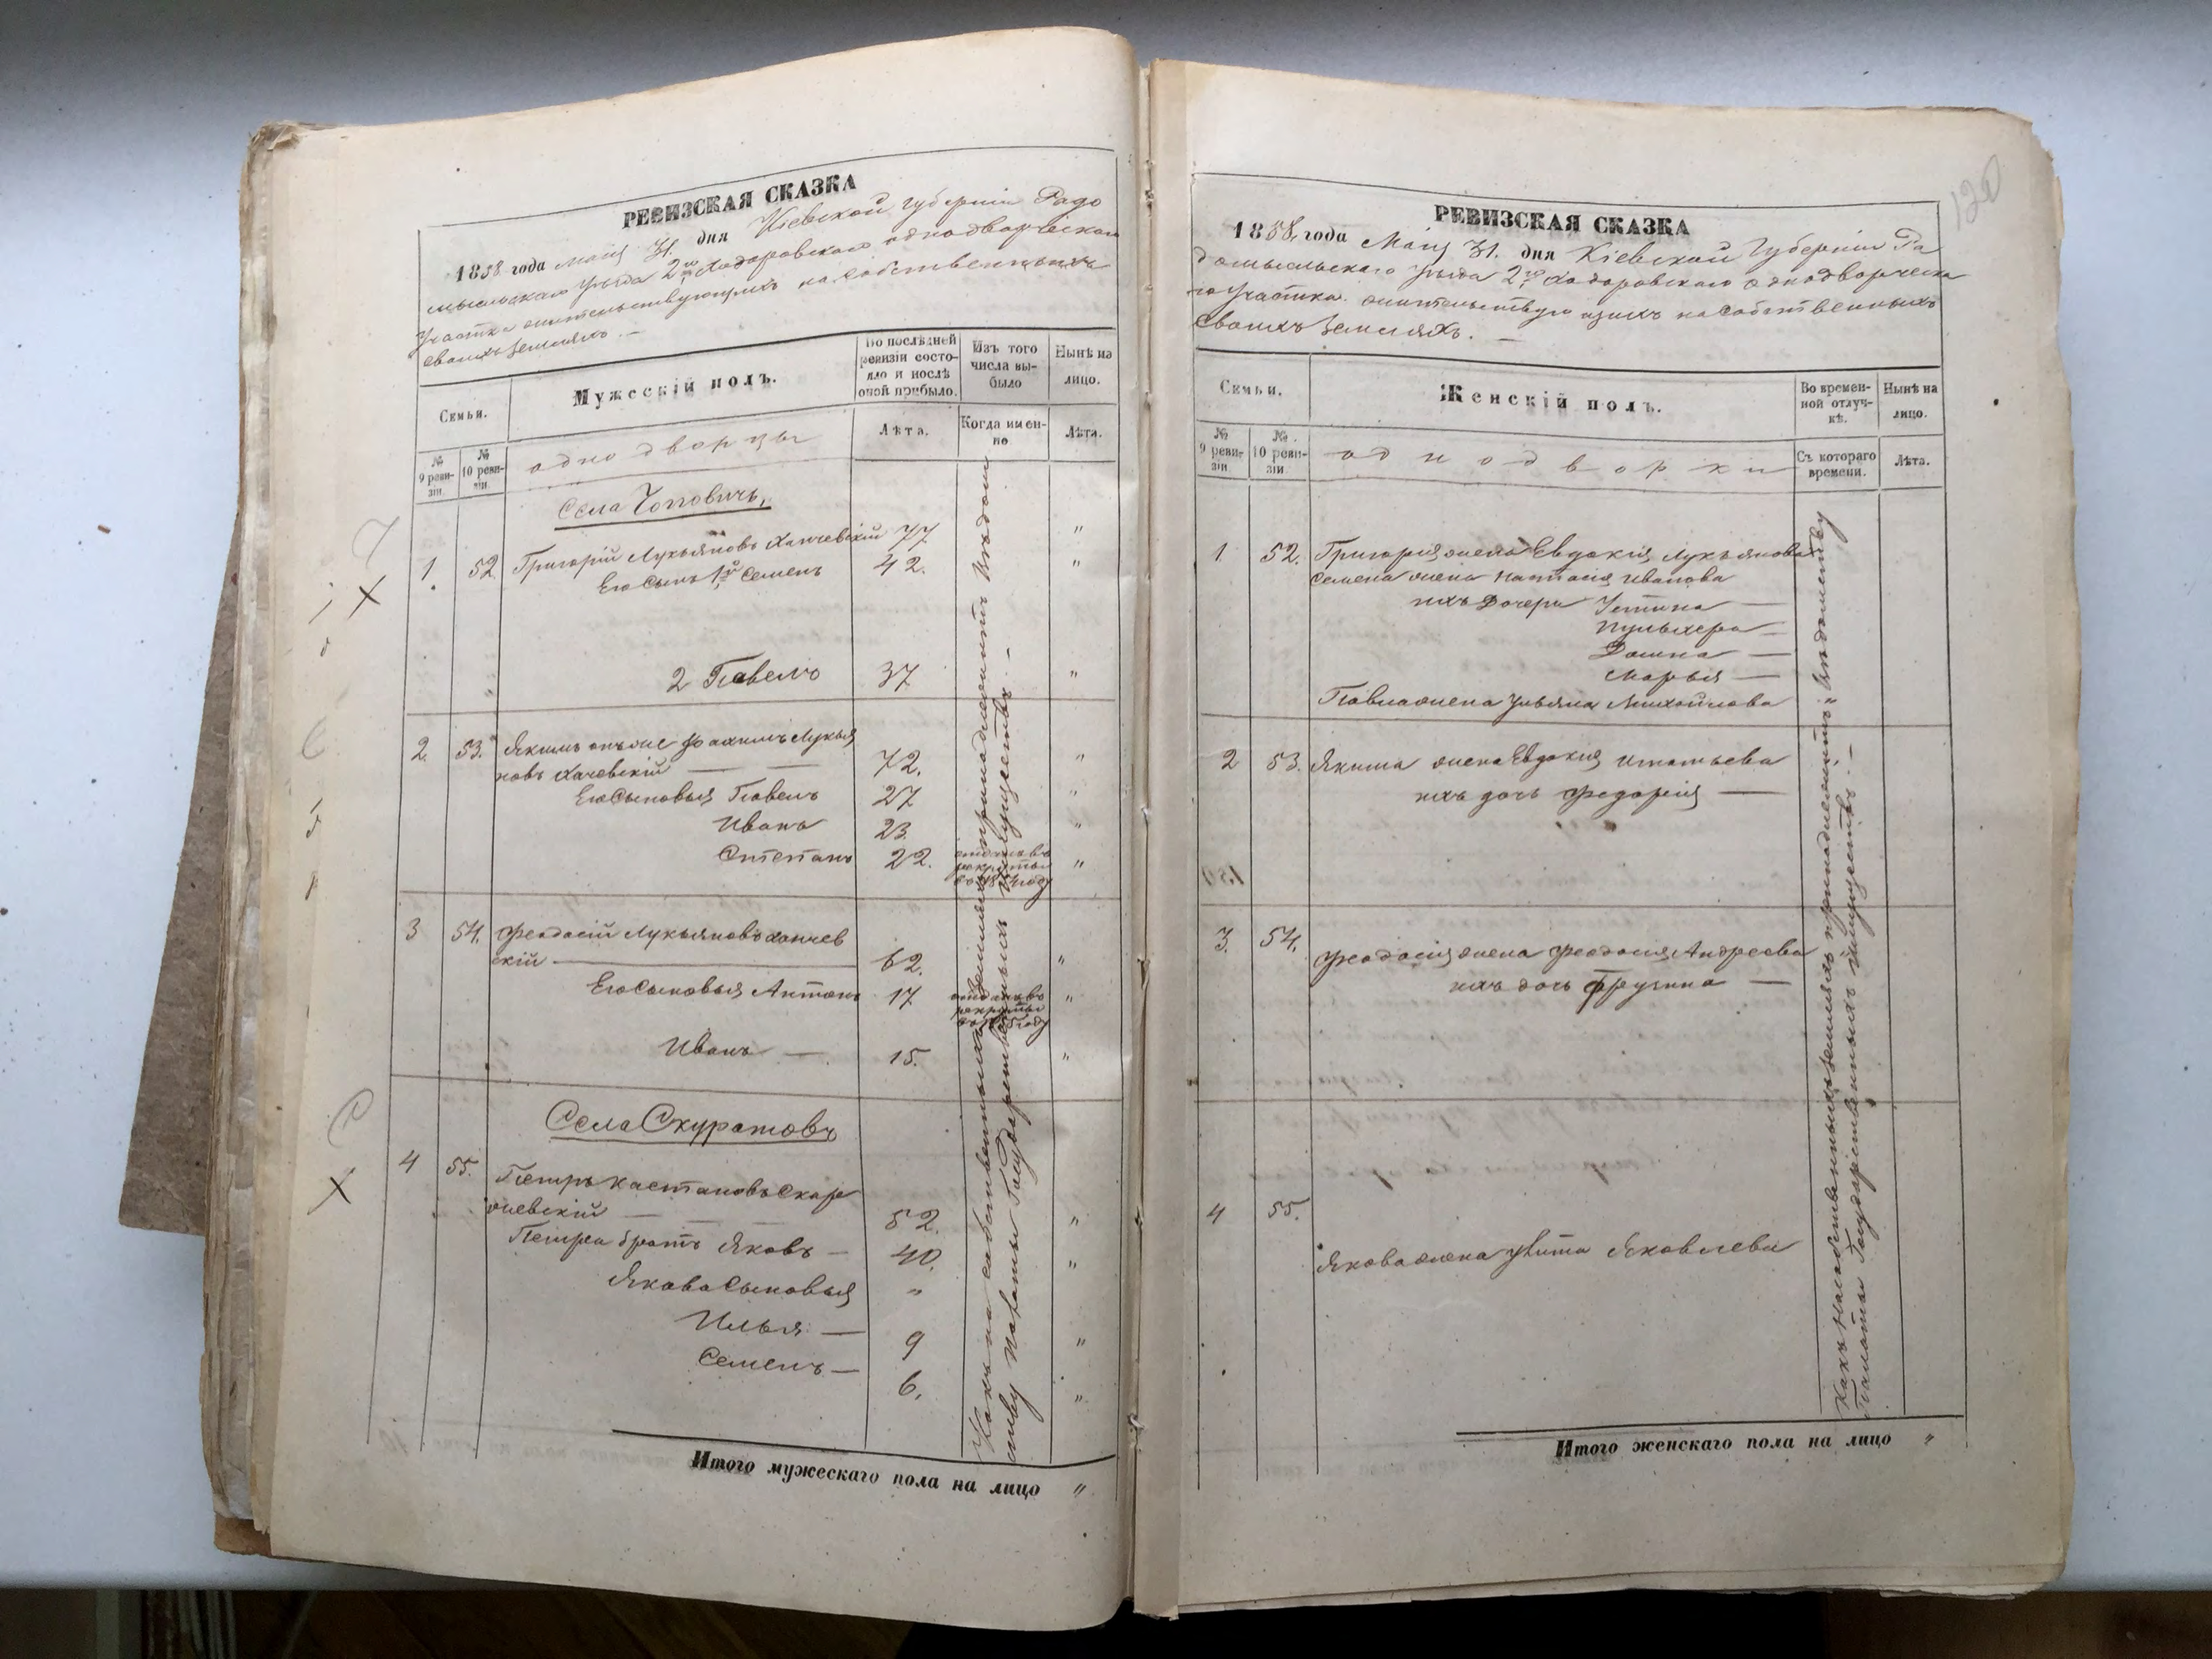 РЕВИЗСКАЯ СКАЗКА
1858 года Маія 31. дня Кіевской губерніи Радо
мысльскаго уѣзда 2го Ходоровскаго однодворческаго
участка жительствующихъ на собственныхъ
своихъ земляхъ. —
Семьи.
Мужескій полъ.
По послѣдней ревизіи состояло и послѣ оной прибыло.
Изъ того числа выбыло
Нынѣ на лицо.
№ 9 ревизіи.
№ 10 ревизіи.
однодворцы
Лѣта.
Когда именно
Лѣта.
Села Чоповичь,
1 52 Григорій Лукьяновъ Ханчевскій 77 "
Его сынъ 1й Семенъ 42. "
2 Павелъ 37 "
2. 53. Якимъ онъ же Іоахимъ Лукья
новъ Хачевскій — — 72. "
Его Сыновья Павелъ 27 "
Иванъ 23 "
Степанъ 22. отданъ въ рекруты "
3 54. Феодосій Лукьяновъ Ханчев
скій — 62. "
Его Сыновья Антонъ 17 отданъ въ рекруты "
Иванъ — 15. "
Села Скуратовъ
4 55. Петръ Кастановъ Скар
жевскій — 52. "
Петра братъ Яковъ — 40. "
Якова Сыновья "
Илья — 9 "
Семенъ — 6. "
Какъ на собственныхъ земляхъ принадлежитъ Вѣдом
ству Палаты Государственныхъ Имуществъ. —
Итого мужескаго пола на лицо "
120
РЕВИЗСКАЯ СКАЗКА
1858, года Маія 31. дня Кіевской Губерніи Ра
домысльскаго уѣзда 2го Ходоровскаго однодворческа
го участка жительствующихъ на собственныхъ
своихъ земляхъ. —
Семьи.
Женскій полъ.
Во временной отлучкѣ.
Нынѣ на лицо.
№ 9 ревизіи
№ 10 ревизіи.
однодворки
Съ котораго времени.
Лѣта.
1. 52. Григорія жена Евдокія Лукьянова
Семена жена Настасія Иванова
ихъ дочери Устина —
Пульхера —
Домна —
Марья —
Павла жена Ульяна Михайлова
2 53. Якима жена Евдокія Игнатьева
ихъ дочь Федорія —
3. 54. Феодосія жена Феодосія Андреева
ихъ дочь Фрузина —
4 55. Якова жена Улита Яковлева
Какъ на собственныхъ земляхъ принадлежитъ Вѣдомству
Палаты Государственныхъ Имуществъ. —
Итого женскаго пола на лицо "